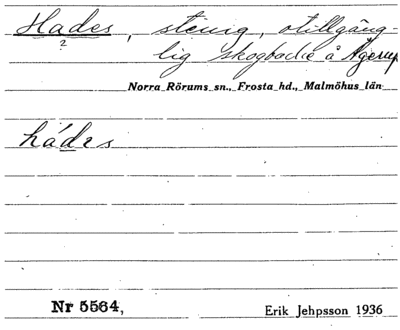 Hades, stenig, otillgäng-
2
lig skogbacke å Agerup
Norra Rörums sn., Frosta hd., Malmöhus län
hádəs
Nr 5564,
Erik Jehpsson 1936